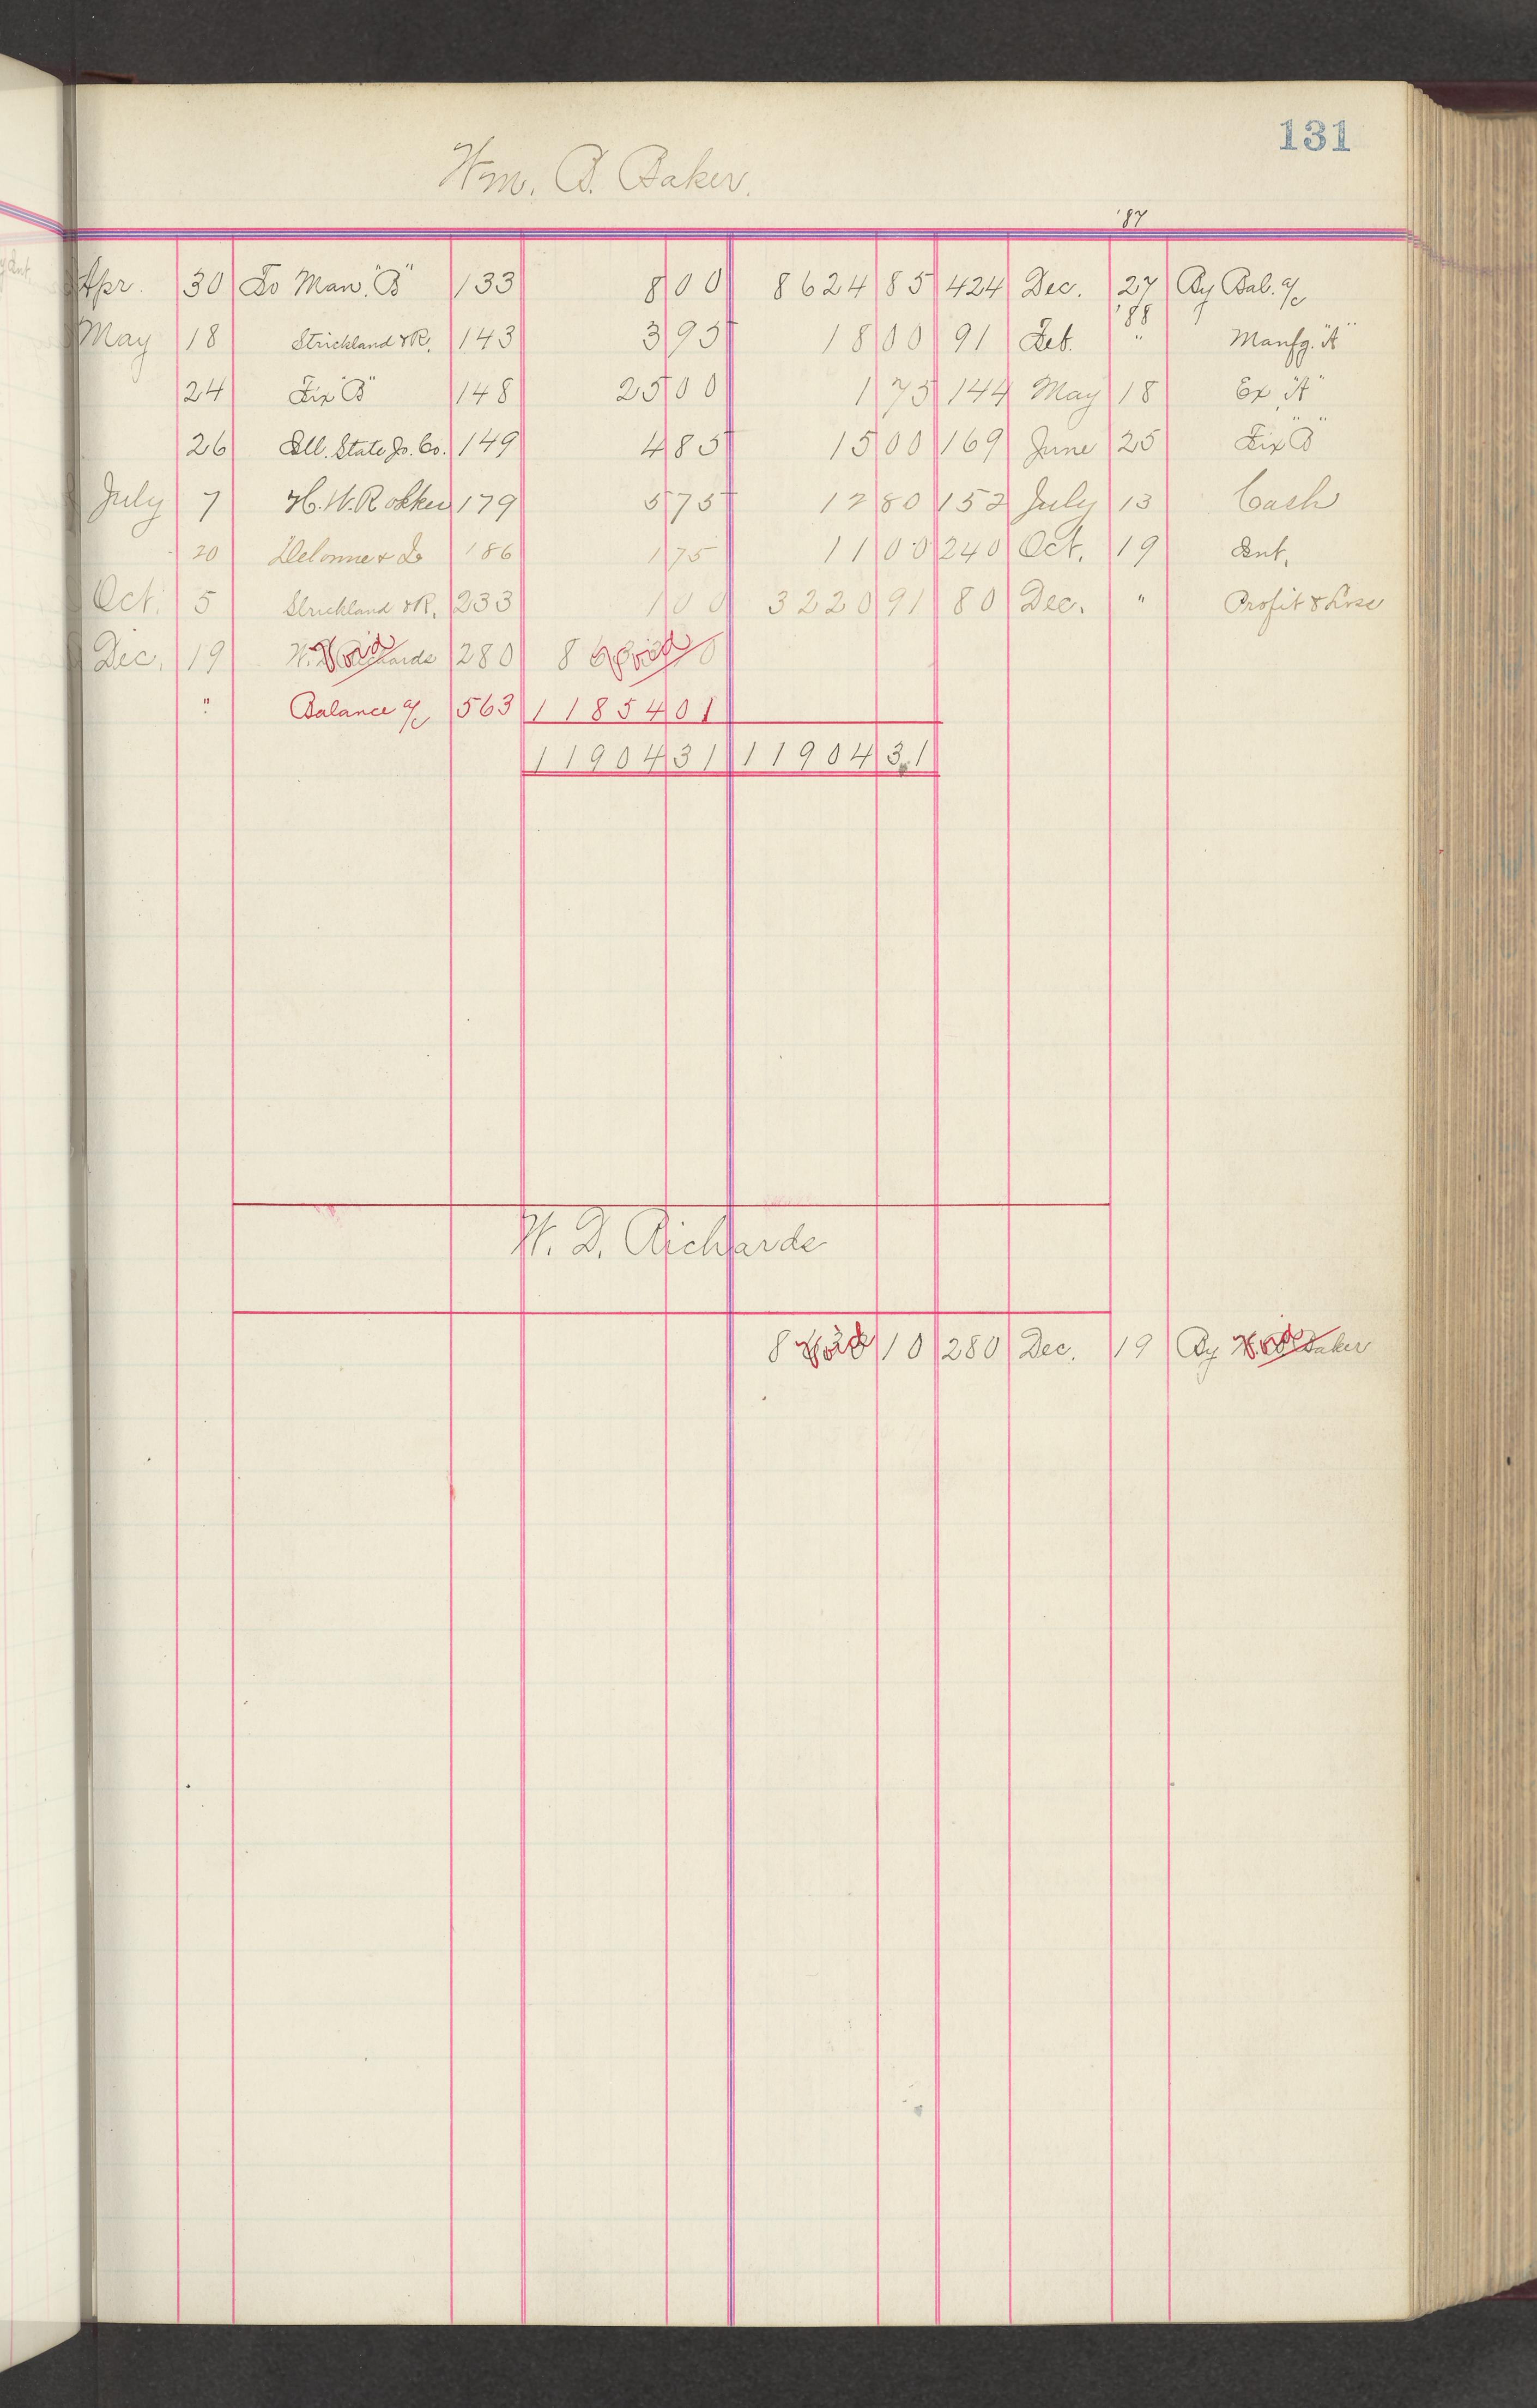 131
Wm. B. Baker.
'87
Apr. 30 To Man. "B" 133 8 00 8624 85 424 Dec. 27 By Bal. a/c
'88
May 18 Strickland & R. 143 3 95 18 00 91 Feb. " Manfg. "A"
24 Fix "B" 148 25 00 1 75 144 May 18 Ex. "A"
26 Ill. State Jo. Co. 149 4 85 15 00 169 June 25 Fix "B"
July 7 H. W. Rokker 179 5 75 12 80 152 July 13 Cash
20 & Co 186 1 75 11 00 240 Oct. 19 Int.
Oct. 5 Strickland & R. 233 1 00 3220 91 80 Dec. " Profit & Loss
Dec. 19 Void 280 8 Void 0
" Balance a/c 563 11854 01
11904 31 11904 31
W. D. Richards
8 Void 10 280 Dec. 19 By Void Baker